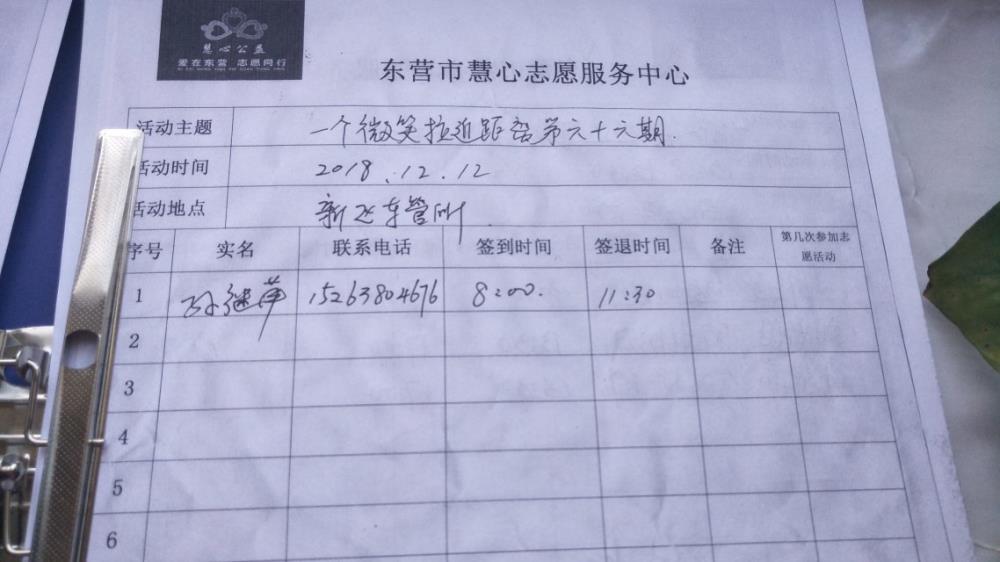 慧心公益
爱在东营 志愿同行
东营市慧心志愿服务中心
活动主题 一个微笑拉近距离第六十六期.
活动时间 2018.12.12
活动地点 新 车管所
序号 实名 联系电话 签到时间 签退时间 备注 第几次参加志愿活动
1 孙继 15263804676 8:00. 11:30
2
3
4
5
6